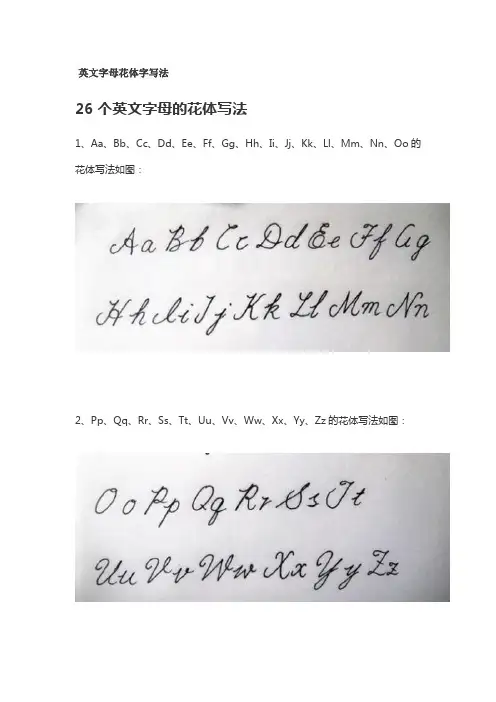 英文字母花体字写法
26 个英文字母的花体写法
1、Aa、Bb、Cc、Dd、Ee、Ff、Gg、Hh、Ii、Jj、Kk、Ll、Mm、Nn、Oo 的
花体写法如图：
Aa Bb Cc Dd Ee Ff Gg
Hh Ii Jj Kk Ll Mm Nn
2、Pp、Qq、Rr、Ss、Tt、Uu、Vv、Ww、Xx、Yy、Zz 的花体写法如图：
Oo Pp Qq Rr Ss Tt
Uu Vv Ww Xx Yy Zz